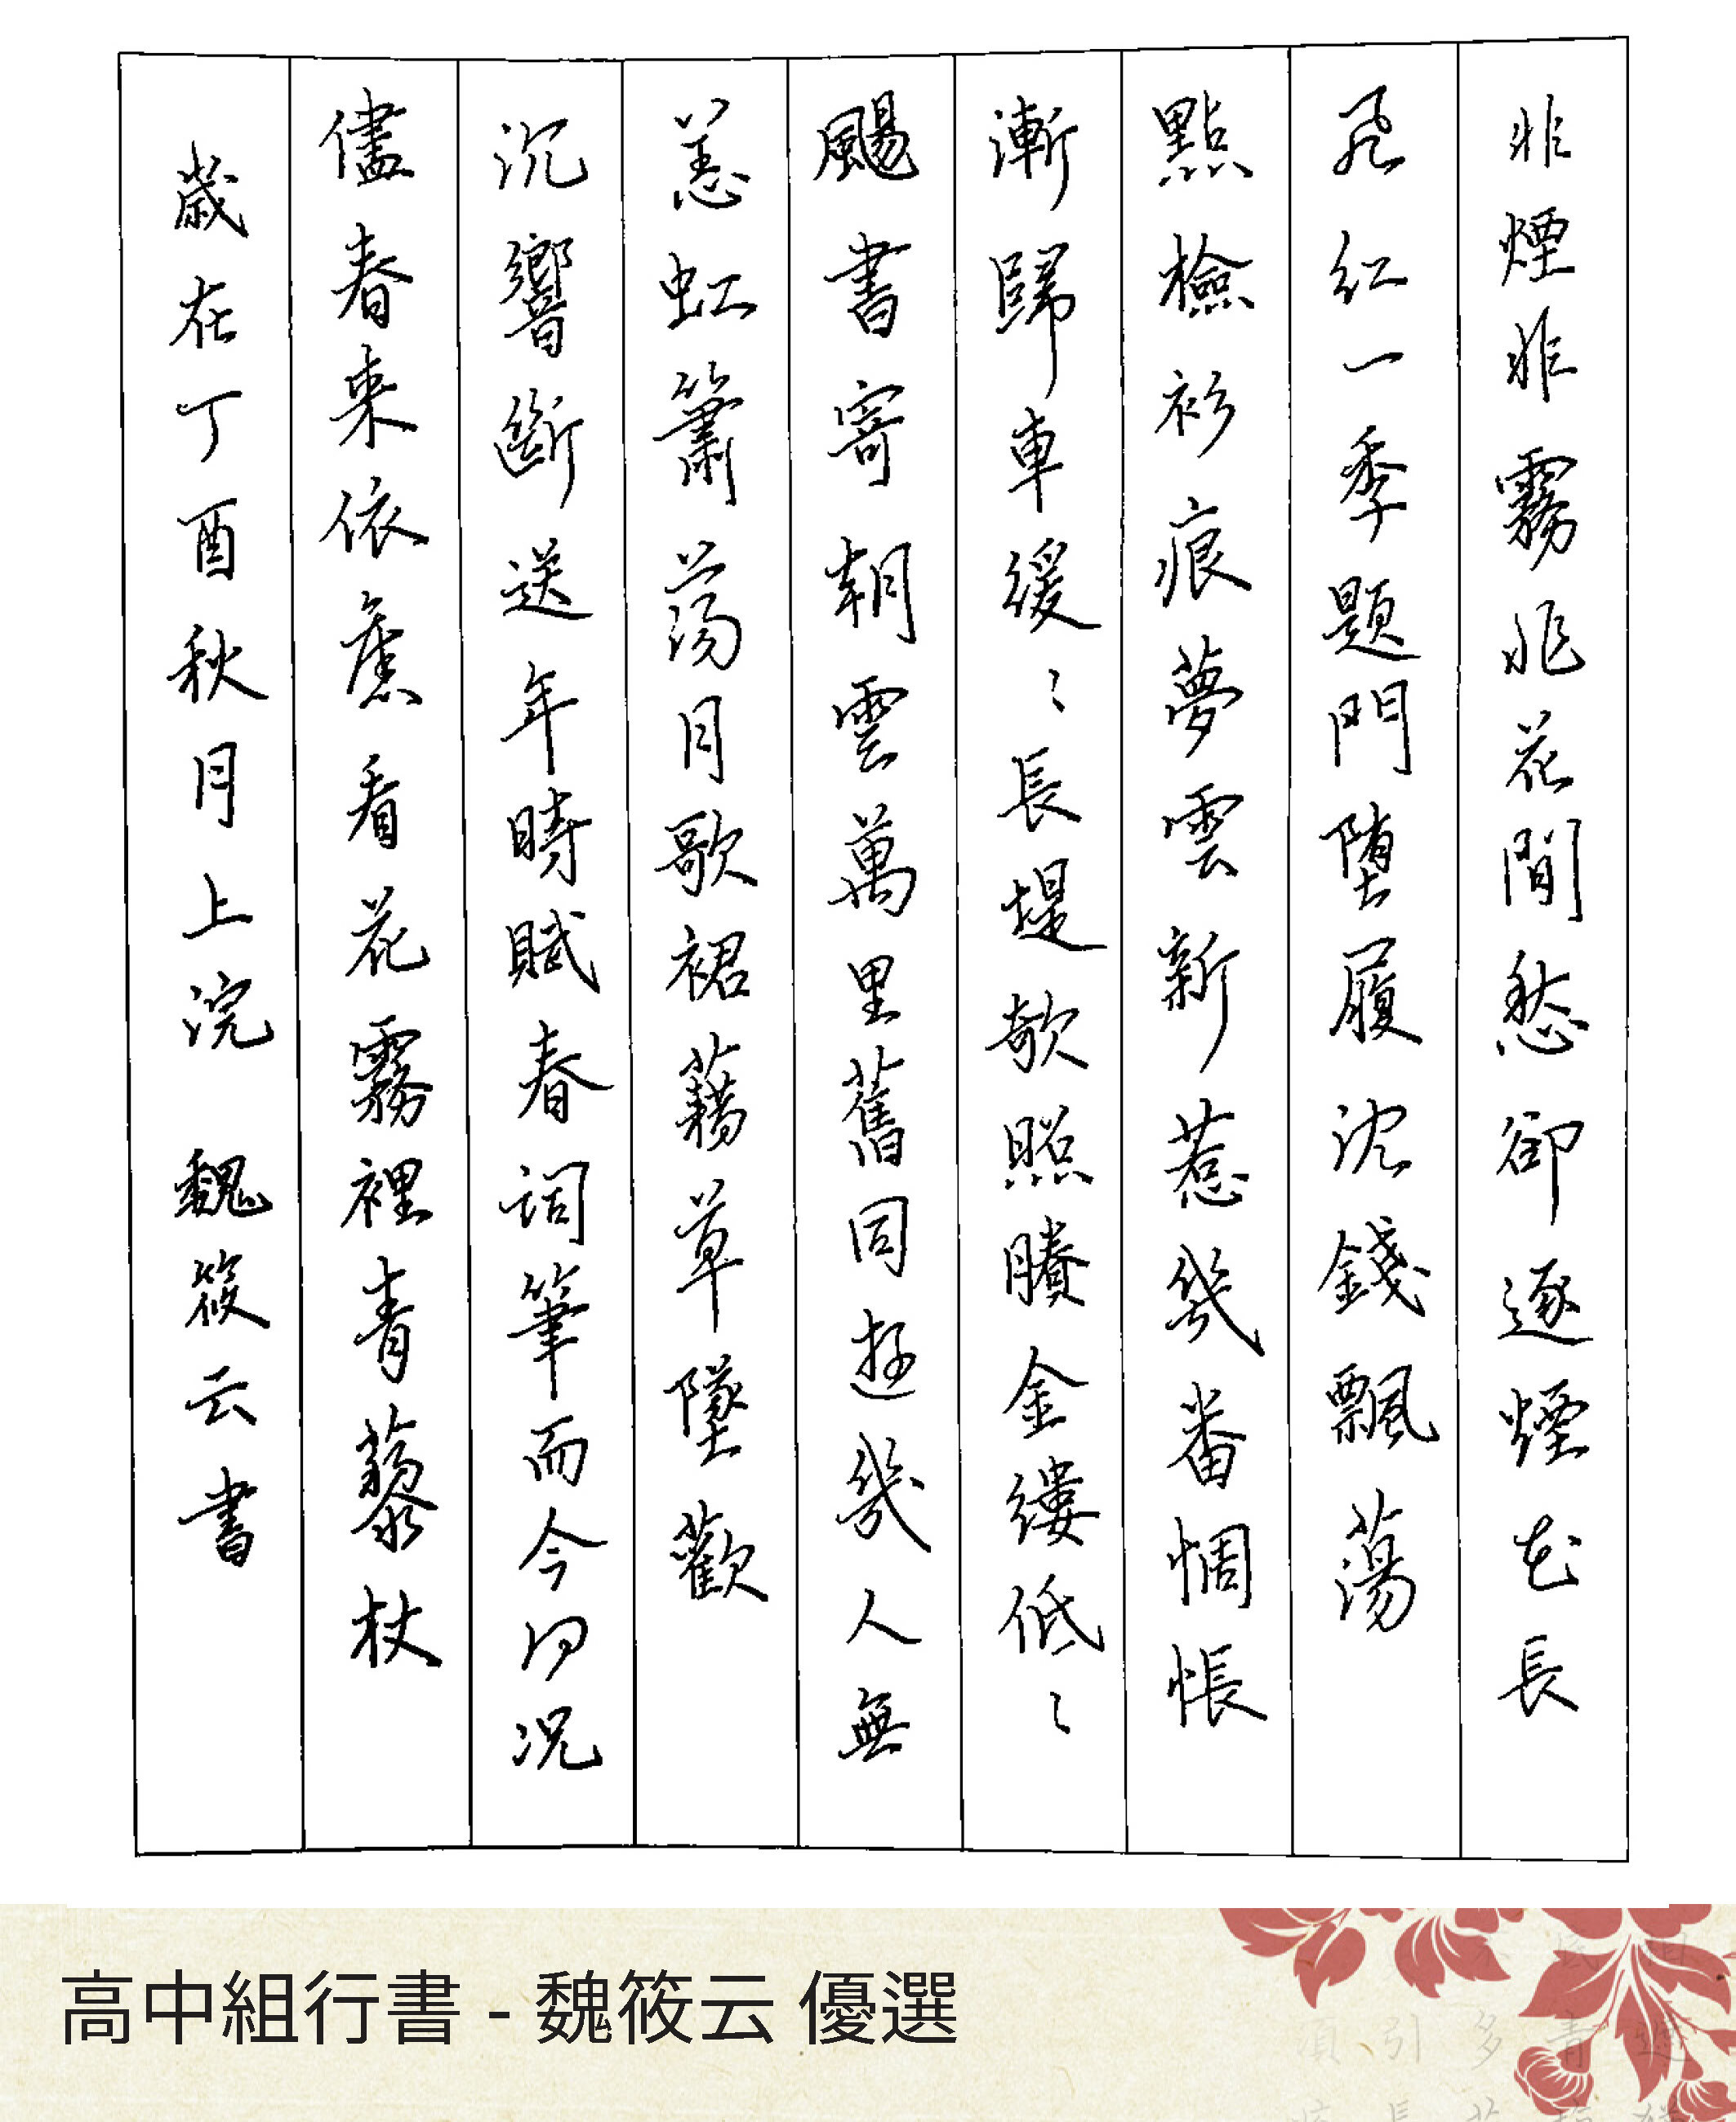 非煙非霧非花間愁卻逐煙花長
飛紅一季題門墮履沈錢飄蕩
點檢衫痕夢雲新惹幾番惆悵
漸歸車緩〻長堤欹照賸金縷低〻
颺書寄朝雲萬里舊同遊幾人無
恙虹簫蕩月歌裙藉草墜歡
沉響斷送年時賦春詞筆而今何況
儘春來依舊看花霧裡青藜杖
歲在丁酉秋月上浣 魏筱云書
高中組行書 - 魏筱云 優選